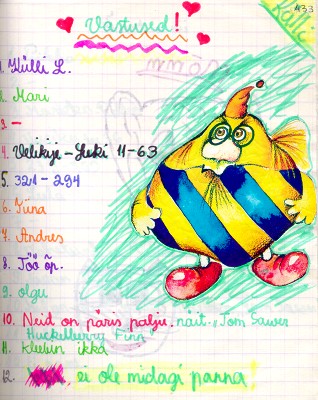 433
Külli
Vastused!
1. Külli L.
2. Mari
3. –
4. Velikije-Luki 11-63
5. 321-294
6. Tiina
7. Andres
8. Töö õp.
9. olgu
10. Neid on päris palju. näit. „Tom Sawer
Huckelberry Finn"
11. Kleebin ikka
12. ei ole midagi panna!